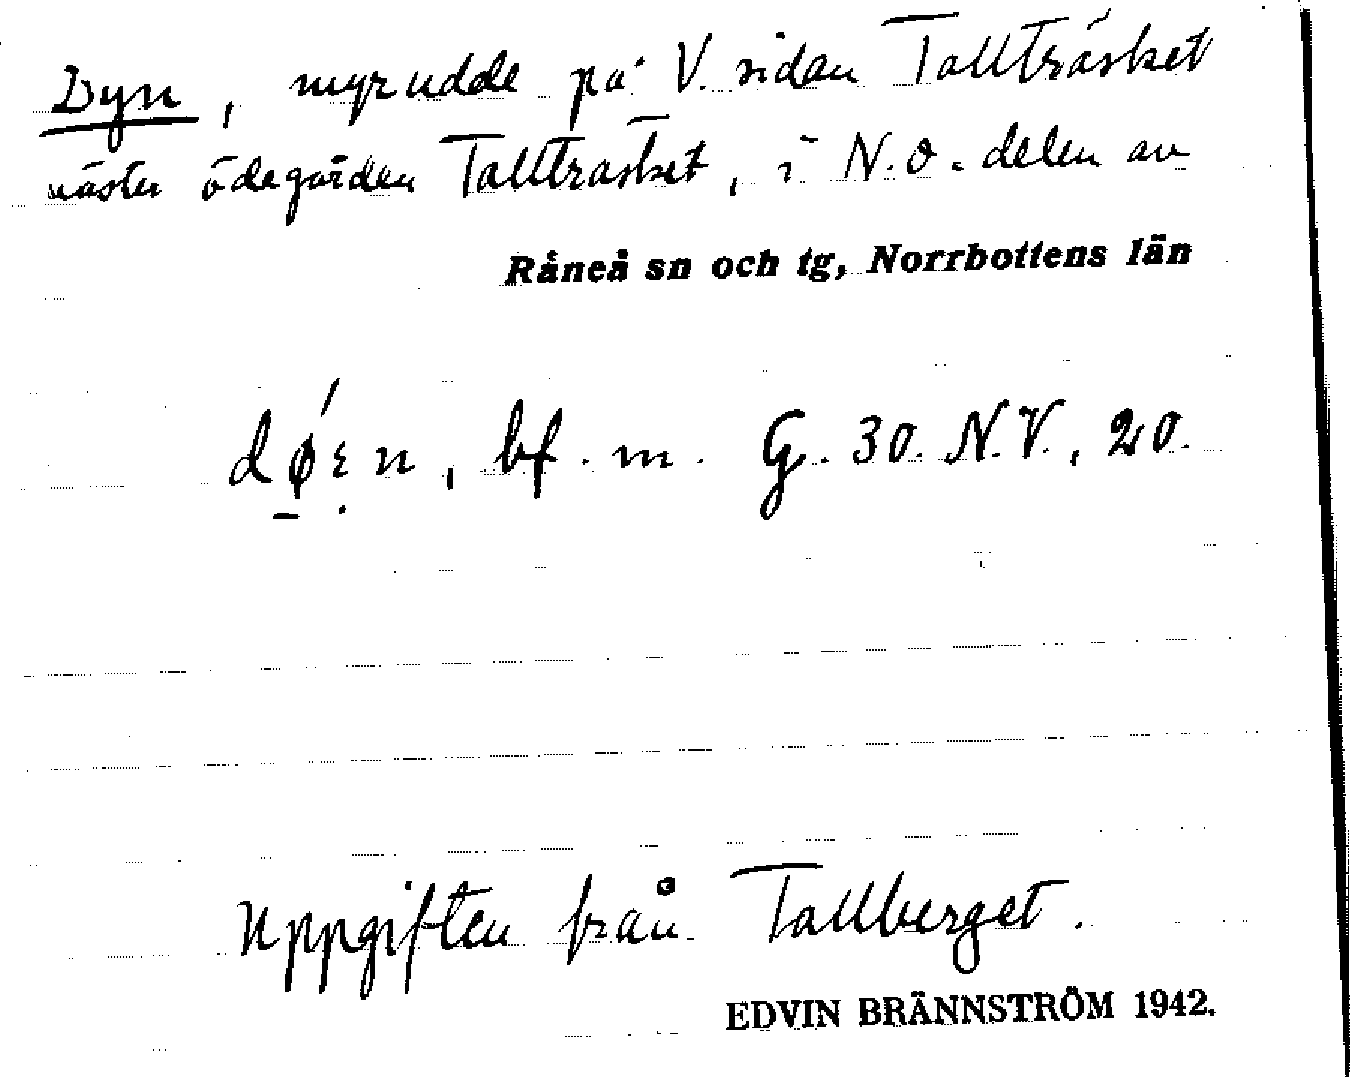 Dyn, myrudde på V. sidan Tallträsket
väster ödegården Tallträsket, i N.O. delen av
Råneå sn och tg, Norrbottens län
dǿ̱ṇ, bf. m. G. 30. N.V., 20.
Uppgiften från Tallberget.
EDVIN BRÄNNSTRÖM 1942.